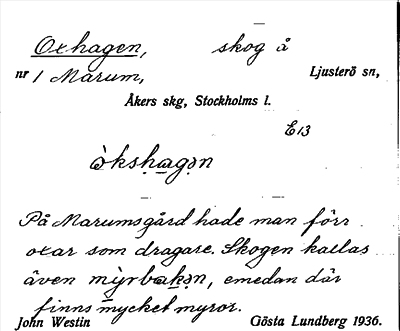 Oxhagen, skog å
nr 1 Marum, Ljusterö sn,
Åkers skg, Stockholms l.
E13
òkshagən
På Marumsgård hade man förr
oxar som dragare. Skogen kallas
även mỳrbakən, emedan där
finns mycket myror.
John Westin Gösta Lundberg 1936.